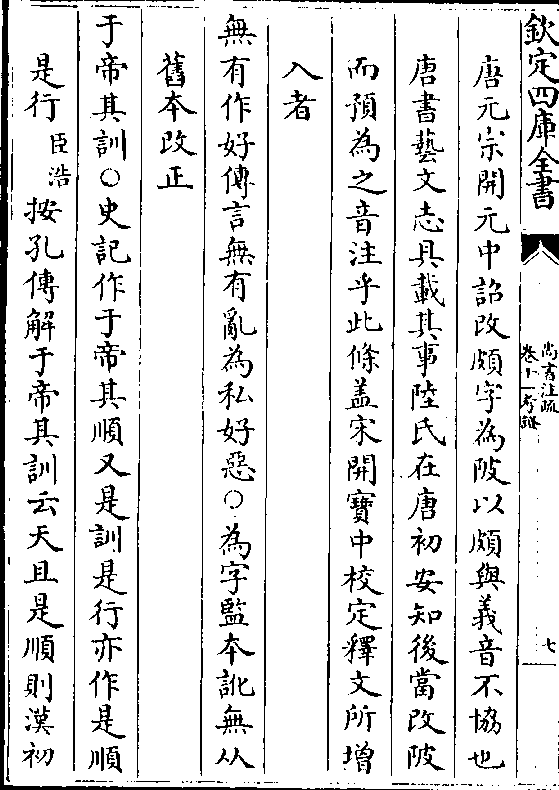 欽定四庫全書
尚書注疏
卷十一考證
七
唐元宗開元中詔改頗字為陂以頗與義音不協也
唐書藝文志具載其事陸氏在唐初安知後當改陂
而預為之音注乎此條盖宋開寶中校定釋文所增
入者
無有作好傳言無有亂為私好惡○為字監本訛無从
舊本改正
于帝其訓○史記作于帝其順又是訓是行亦作是順
是行臣浩按孔傳解于帝其訓云天且是順則漢初